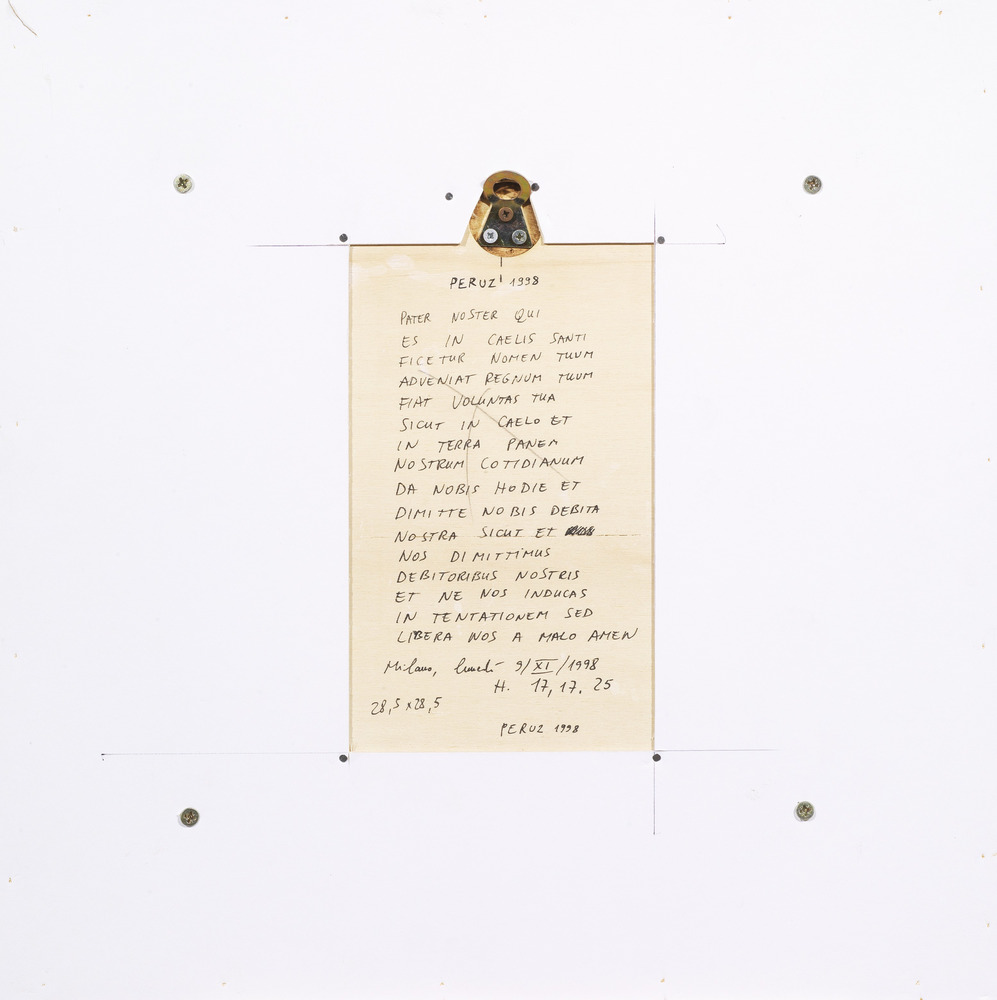 PERUZ 1998
PATER NOSTER QUI
ES IN CAELIS SANTI
FICETUR NOMEN TUUM
ADVENIAT REGNUM TUUM
FIAT VOLUNTAS TUA
SICUT IN CAELO ET
IN TERRA PANEM
NOSTRUM COTIDIANUM
DA NOBIS HODIE ET
DIMITTE NOBIS DEBITA
NOSTRA SICUT ET
NOS DIMITTIMUS
DEBITORIBUS NOSTRIS
ET NE NOS INDUCAS
IN TENTATIONEM SED
LIBERA NOS A MALO AMEN
Milano, lunedì 9/XI/1998
H. 17,17.25
28,5 x 28,5
PERUZ 1998